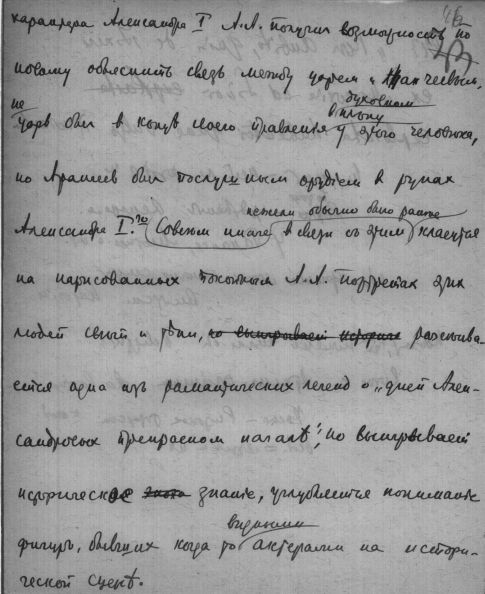 характера Александра I А.А. получил возможность по
новому объяснить связь между царем и Аракчеевым,
не царь был в конце своего правления в плену духовном у этого человека,
но Аракчеев был послушным орудием в руках
Александра I. Совсем иначе, нежели обычно было ранее в связи съ этим кладется
на нарисованных покойным А.А. портретах этих
людей свет и тени, но выигрывает история рассеива-
ется одна из романтических легенд о „дней Алек-
сандровых прекрасном началѣ", но выигрывает
историческое знание, углубляется понимание
фигур, бывших когда то видными актерами на истори-
ческой сценѣ.